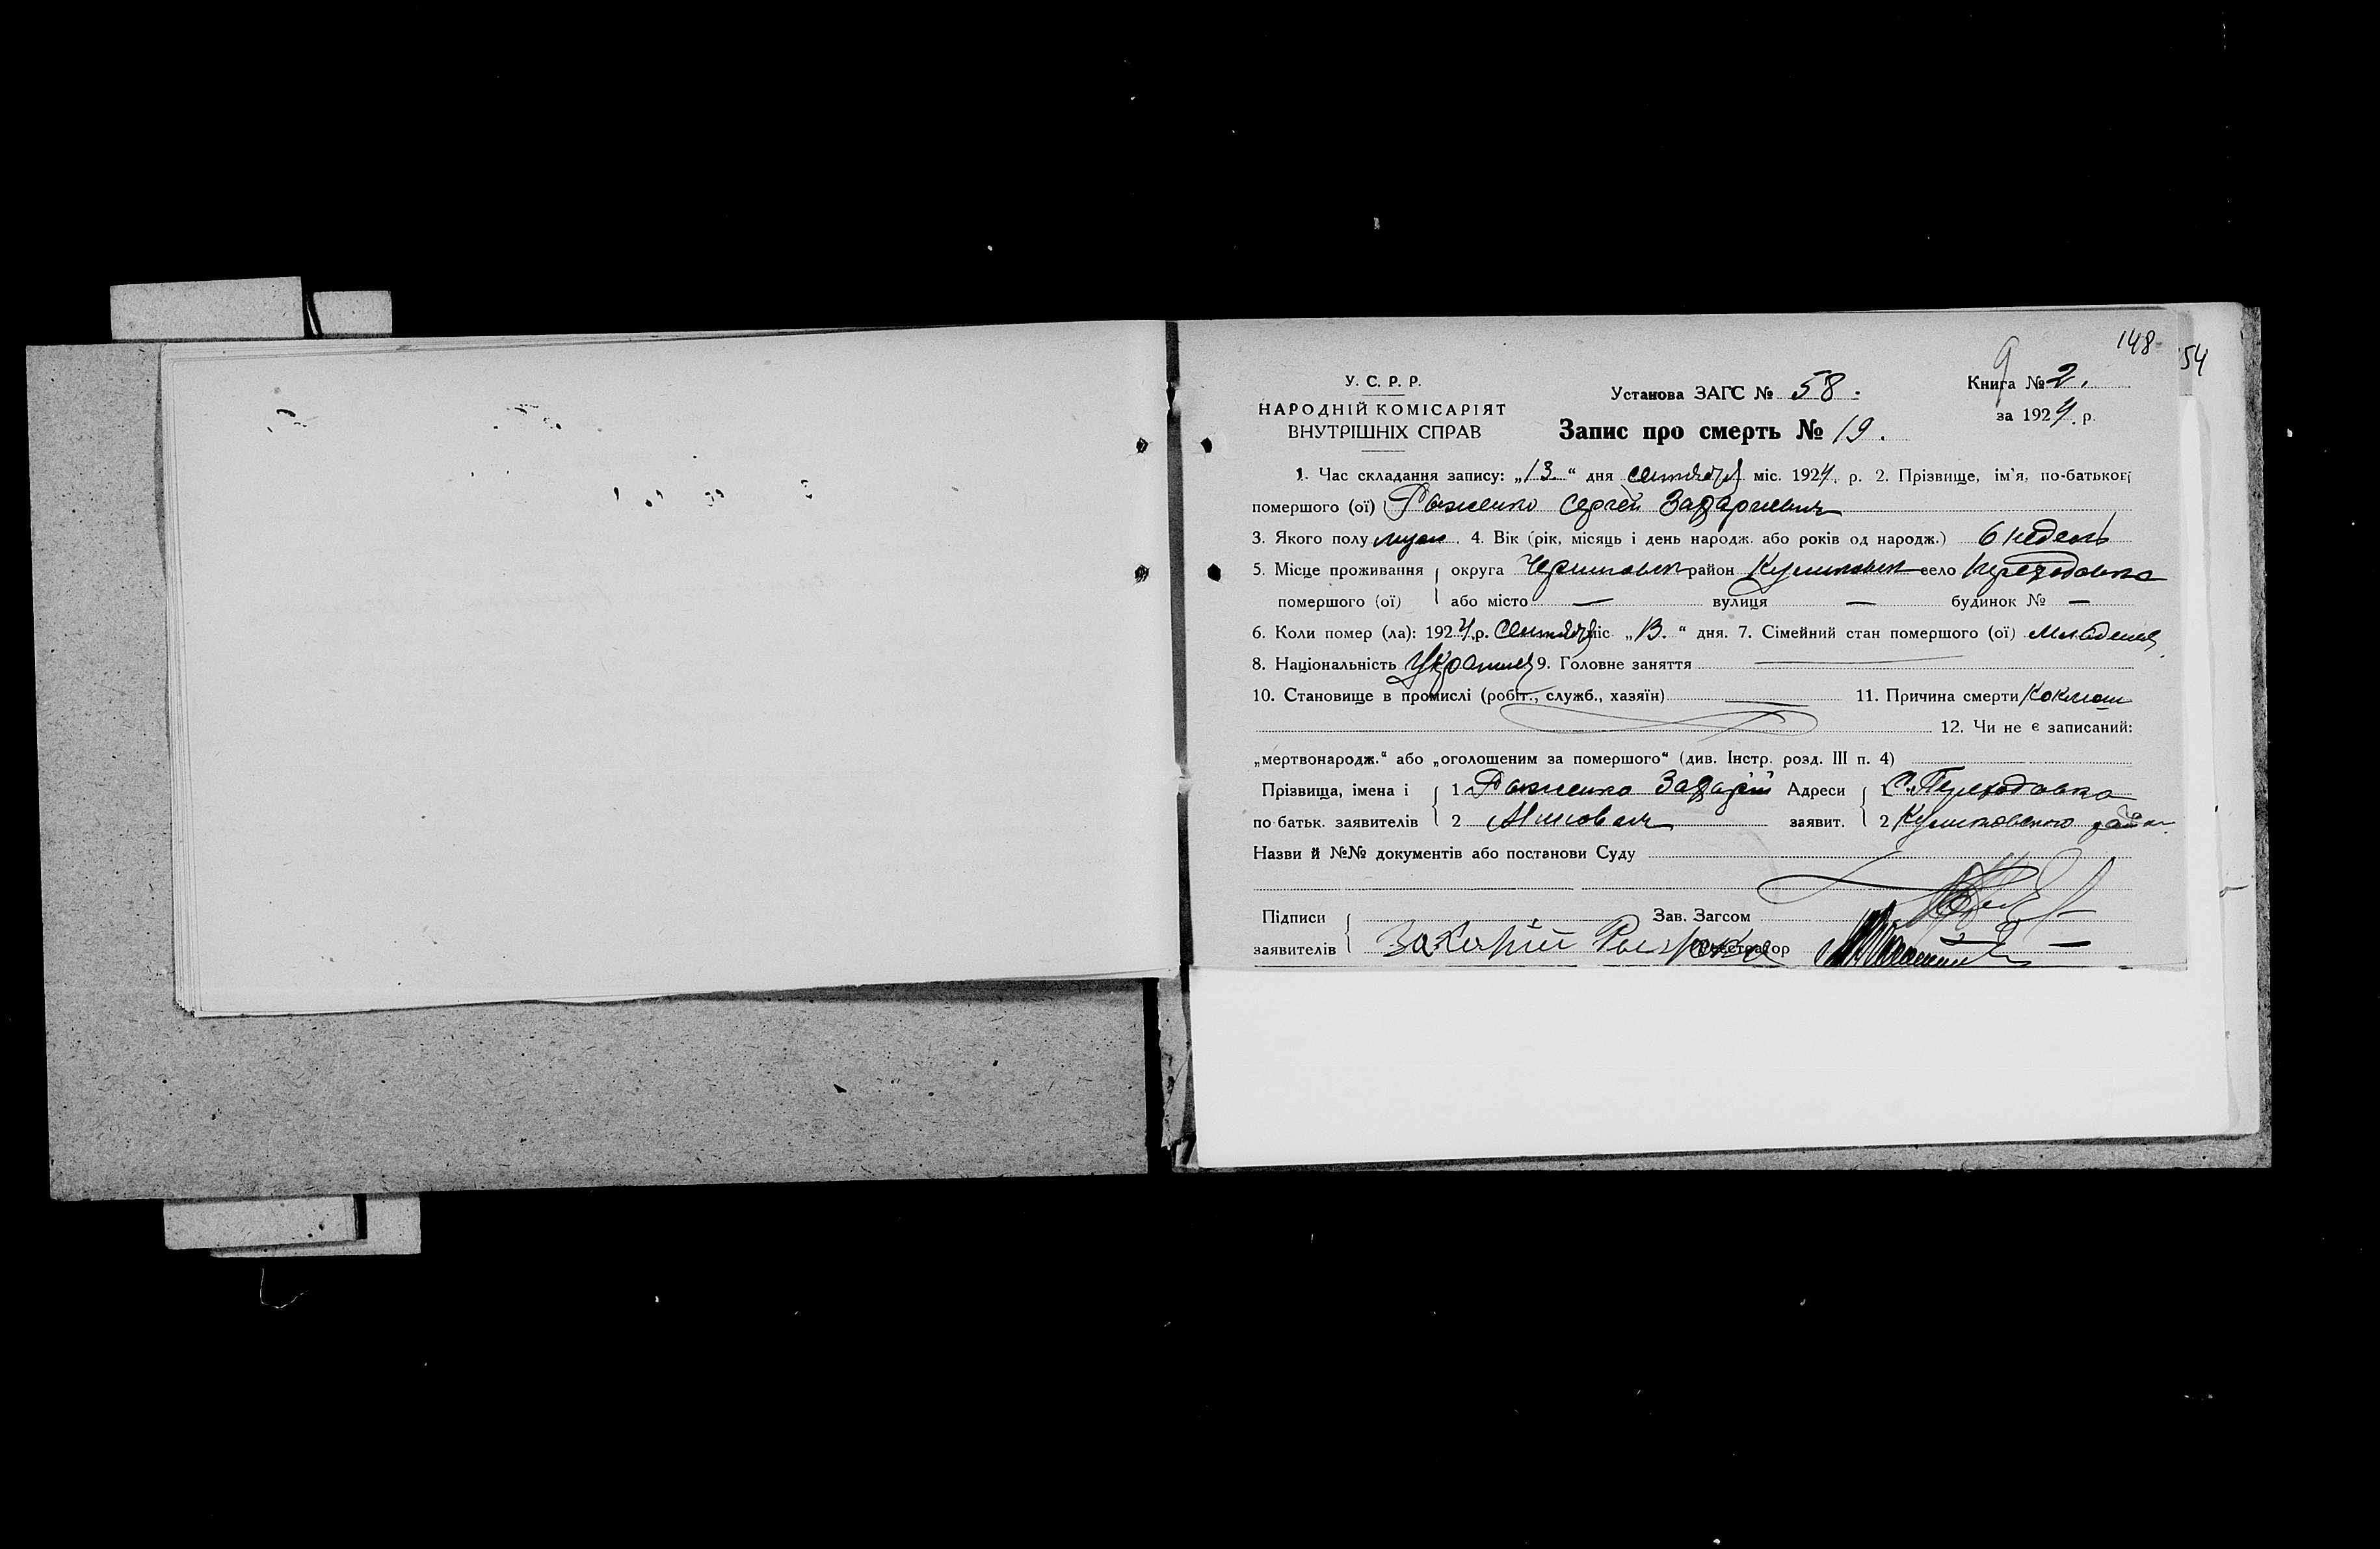 148
54
У. С. Р. Р.
НАРОДНІЙ КОМІСАРІЯТ
ВНУТРІШНІХ СПРАВ
Установа ЗАГС № 58.
Запис про смерть № 19.
9
Книга № 2.
за 1924 р.
1. Час складання запису: „13“ дня сентября міс. 1924 р. 2. Прізвище, ім'я, по-батькові
помершого (ої) Сергей Захариевич
3. Якого полу муж. 4. Вік (рік, місяць і день народж. або років од народж.) 6 недель
5. Місце проживання округа Черниговск район Куликовск село Переходовка
помершого (ої) або місто — вулиця — будинок № —
6. Коли помер (ла): 1924 р. Сентября міс „13.“ дня. 7. Сімейний стан помершого (ої) младенец
8. Національність Украинец 9. Головне заняття —
10. Становище в промислі (робіт., служб., хазяїн) — 11. Причина смерти Коклюш
12. Чи не є записаний:
„мертвонародж.“ або „оголошеним за помершого“ (див. Інстр. розд. III п. 4)
Прізвища, імена і 1 Захарій Адреси 1 С. Переходовка
по батьк. заявителів 2 заявит. 2 Куликовского района
Назви й №№ документів або постанови Суду
Підписи Зав. Загсом
заявителів Захарій Реєстратор